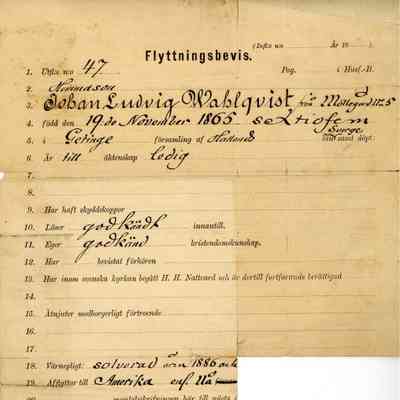 (Infts n:o År 18 ).
Flyttningsbevis.
1. Utfts n:o 47 Pag. i Husf.-B.
2.
3. Johan Ludvig Wahlqvist från Möllegård N:5
4. född den 19 de November 1865 sextiofem
5. i Getinge församling af Halland Sverge och samt döpt.
6. Är till äktenskap ledig
7.
8.
9. Har haft skyddskoppor
10. Läser godkändt innantill.
11. Eger godkänd kristendomskunskap.
12. Har bevistat förhören
13. Har inom svenska kyrkan begått H. H. Nattvard och är dertill fortfarande berättigad
14.
15. Åtnjuter medborgerligt förtroende
16.
17.
18. Värnepligt: 1886
19. Afflyttar till Amerika enl.
20. mantalsskrifningen här till